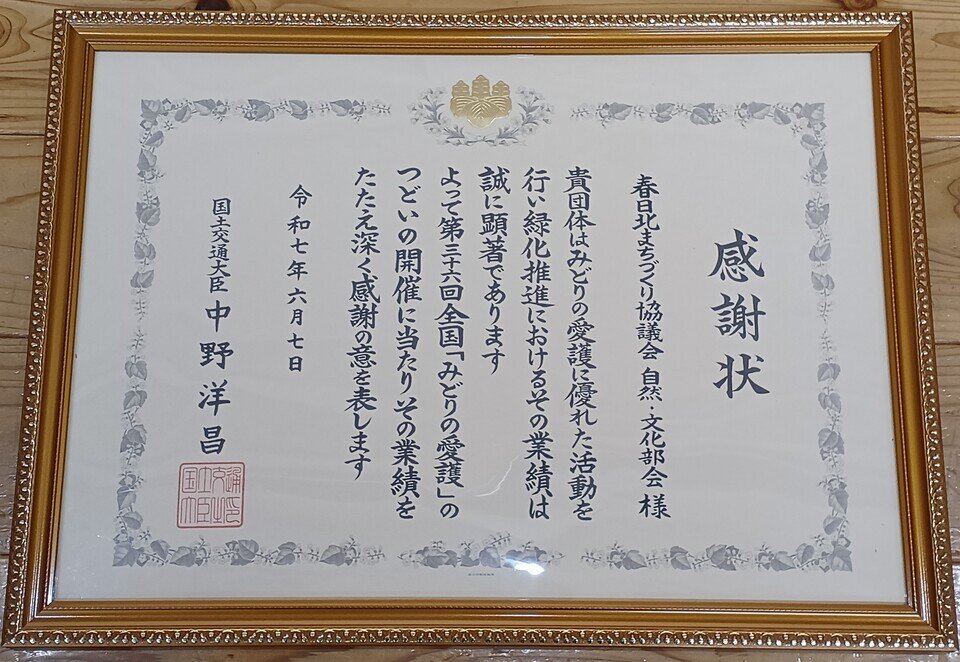 感謝状
春日北まちづくり協議会 自然・文化部会 様
貴団体はみどりの愛護に優れた活動を
行い緑化推進におけるその業績は
誠に顕著であります
よって第三十六回全国「みどりの愛護」の
つどいの開催に当たりその業績を
たたえ深く感謝の意を表します
令和七年六月七日
国土交通大臣 中野洋昌